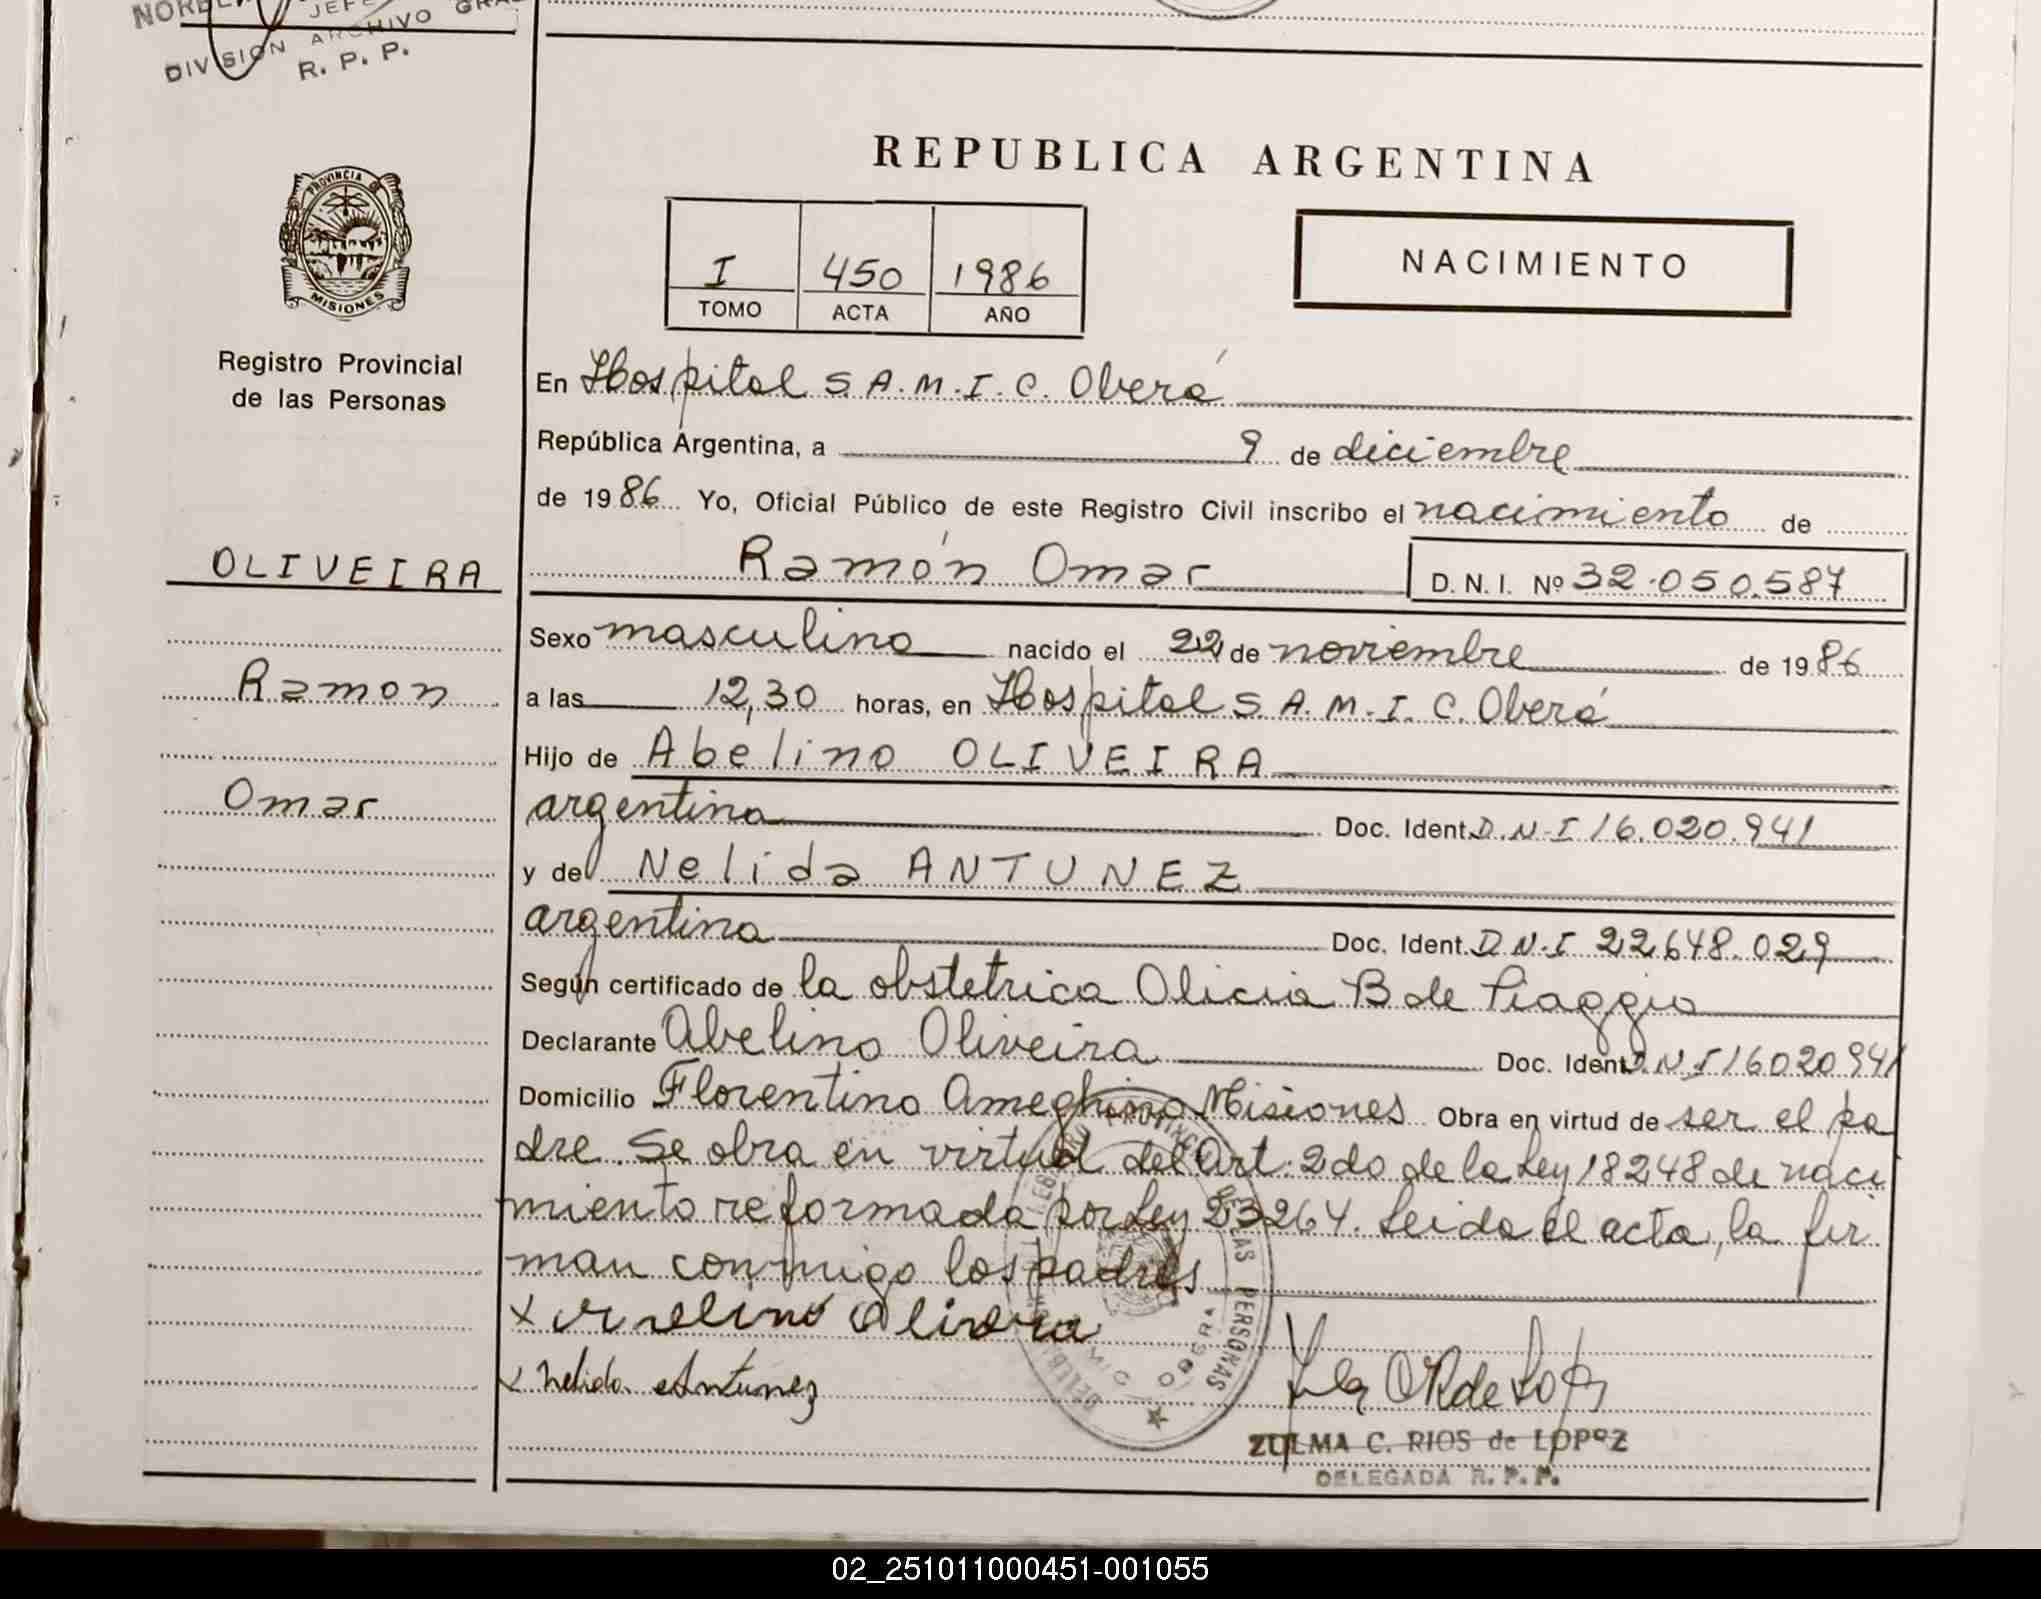 DIVISION ARCHIVO GRAL
R. P. P.
PROVINCIA DE
MISIONES
Registro Provincial
de las Personas
OLIVEIRA
Ramon
Omar
REPUBLICA ARGENTINA
I 450 1986
TOMO ACTA AÑO
NACIMIENTO
En Hospital S.A.M.I.C. Oberá
República Argentina, a 9 de diciembre
de 1986 Yo, Oficial Público de este Registro Civil inscribo el nacimiento de
Ramón Omar D.N.I. Nº 32.050.587
Sexo masculino nacido el 22 de noviembre de 1986
a las 12,30 horas, en Hospital S.A.M.I.C. Oberá
Hijo de Abelino OLIVEIRA
argentina Doc. Ident. D.N.I 16.020.941
y de Nelida ANTUNEZ
argentina Doc. Ident. D.N.I 22648.029
Según certificado de la obstetrica Alicia B de Piaggio
Declarante Abelino Oliveira Doc. Ident. D.N.I 16020941
Domicilio Florentino Ameghino Misiones Obra en virtud de ser el pa
dre. Se obra en virtud del Art. 2do de la Ley 18248 de naci
miento reformada por Ley 23264. Leida el acta, la fir
man conmigo los padres
x Avelino Olivera
x Nelida Antunez
ZULMA C. RIOS de LOPEZ
DELEGADA R. P. P.
02_251011000451-001055